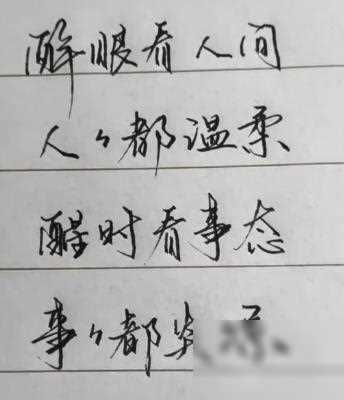 醉眼看人间
人々都温柔
醒时看事态
事々都